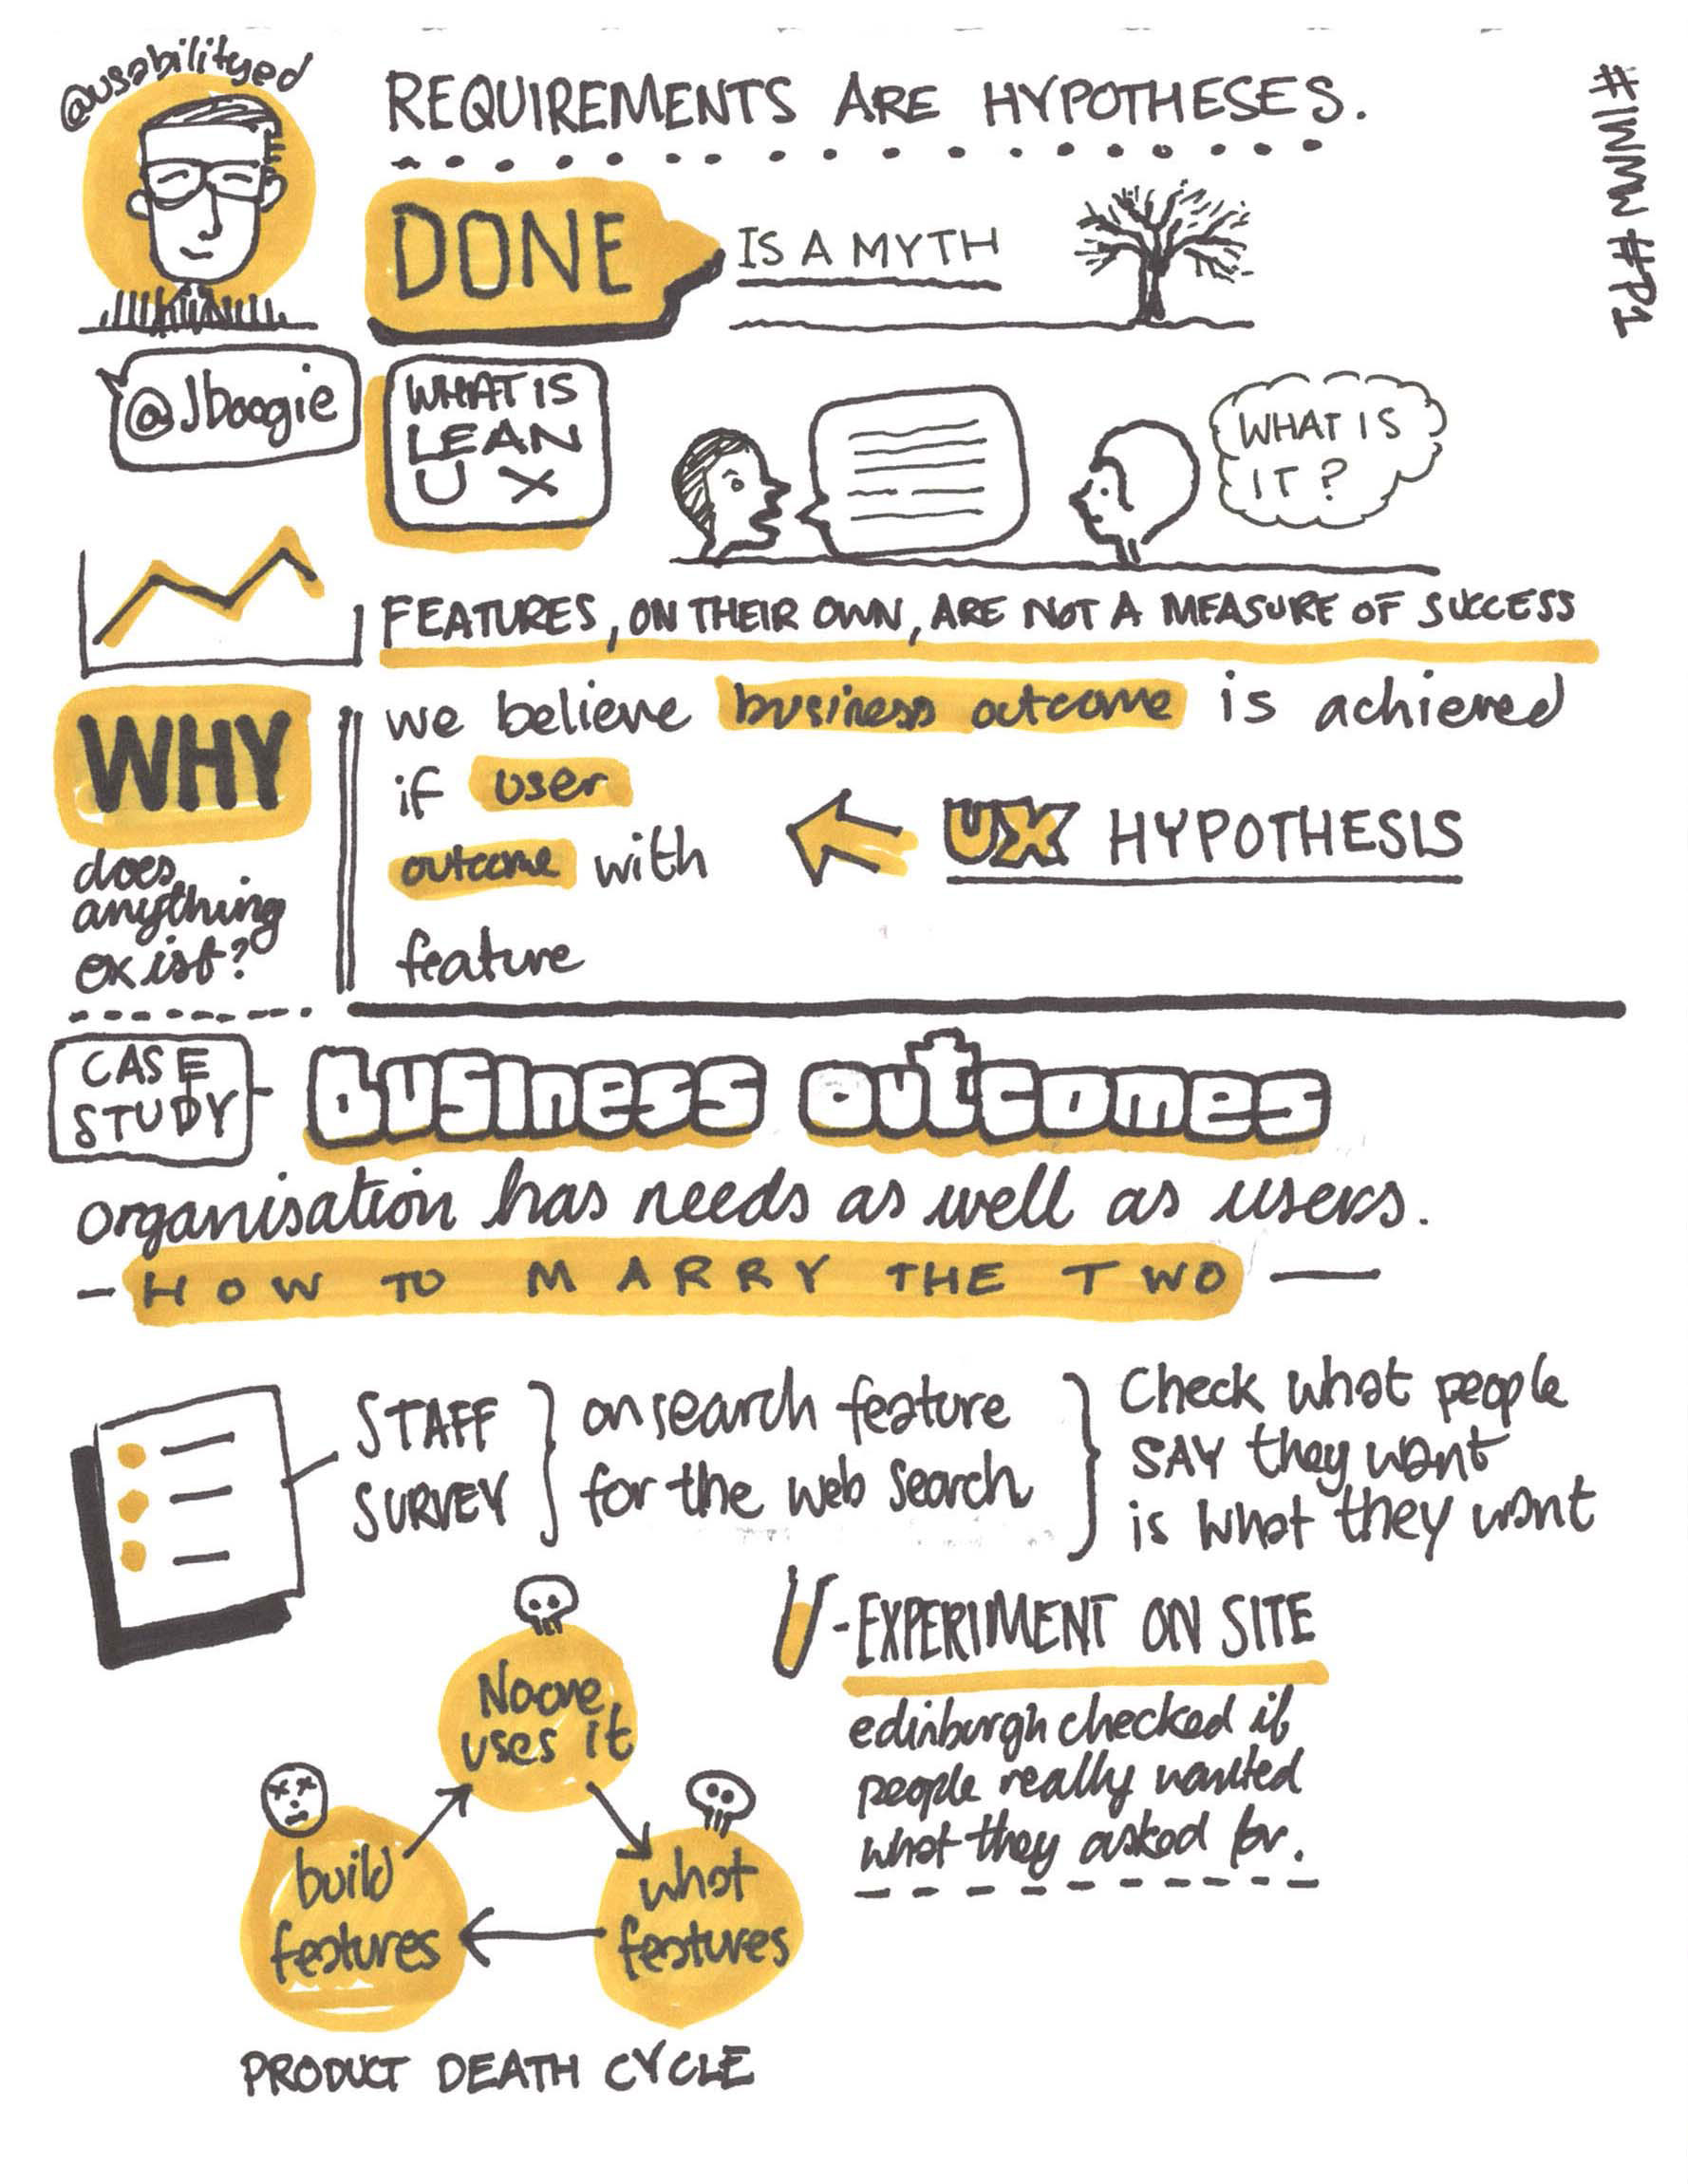 @usabilityed
REQUIREMENTS ARE HYPOTHESES.
#IWMW #P1
DONE IS A MYTH
@Jboogie
WHAT IS
LEAN
UX
WHAT IS
IT?
FEATURES, ON THEIR OWN, ARE NOT A MEASURE OF SUCCESS
WHY
does
anything
exist?
we believe business outcome is achieved
if user
outcome with
feature
UX HYPOTHESIS
CASE
STUDY
Business outcomes
organisation has needs as well as users.
- HOW TO MARRY THE TWO -
STAFF
SURVEY
on search feature
for the web search
Check what people
SAY they want
is what they want
- EXPERIMENT ON SITE
edinburgh checked if
people really wanted
what they asked for.
Noone
uses it
what
features
build
features
PRODUCT DEATH CYCLE